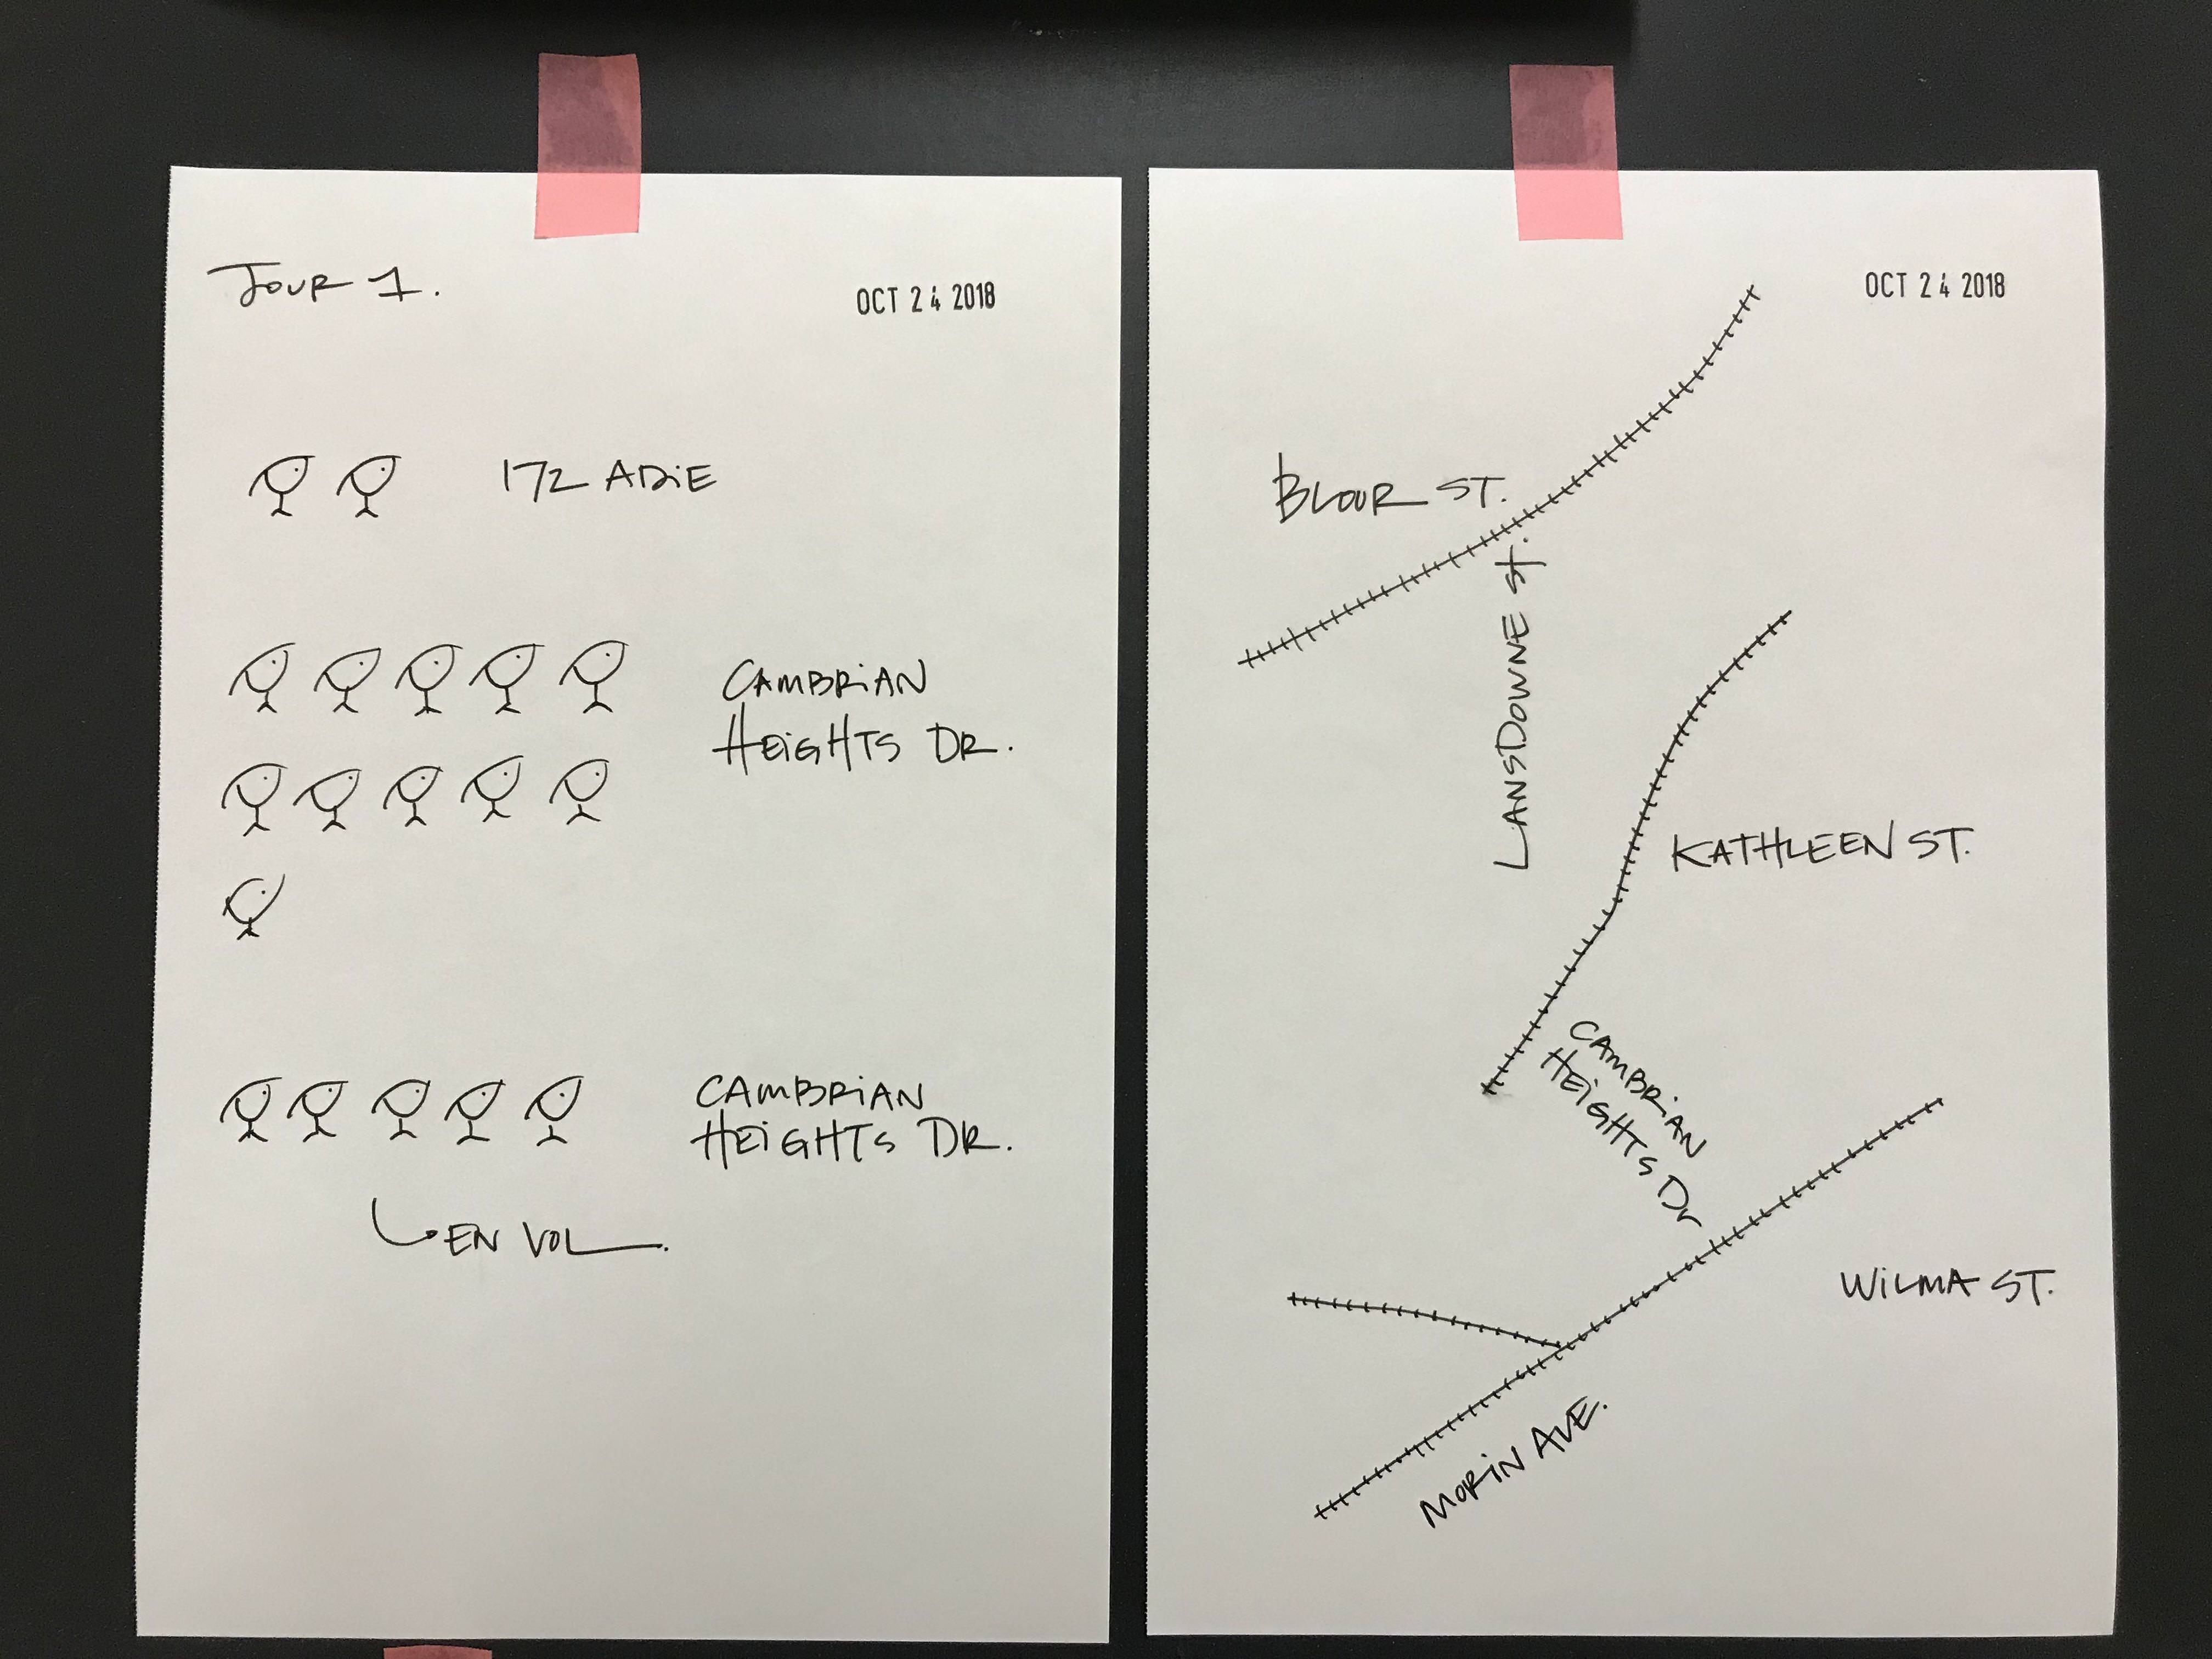 JOUR 1.
OCT 24 2018
172 ADiE
CAMBRiAN
HEiGHTS DR.
CAMBRiAN
HEiGHTS DR.
EN VOL.
OCT 24 2018
BLOUR ST.
LANSDOWNE St.
KATHLEEN ST.
CAMBRiAN
HEiGHTS Dr
WiLMA ST.
MORiN AVE.